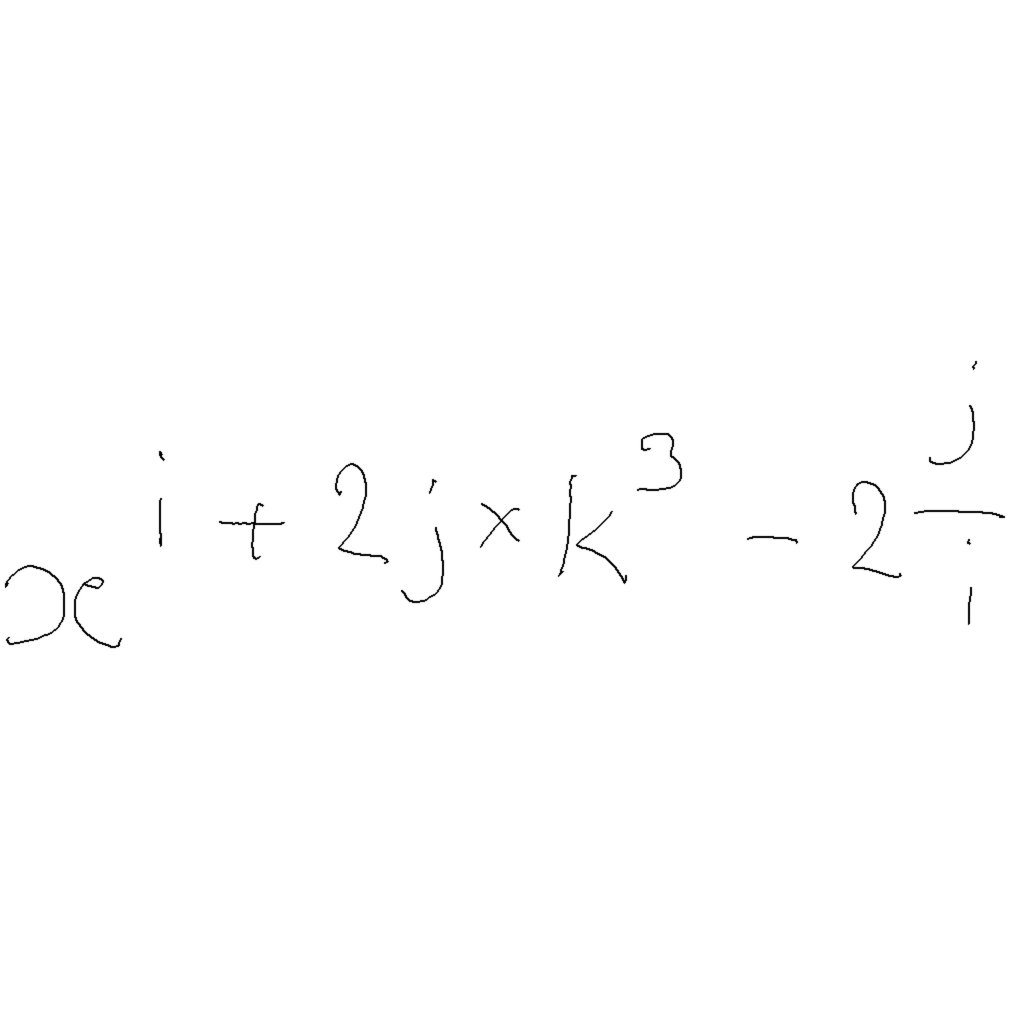 x^i + 2j × k^3 - 2\frac{j}{i}